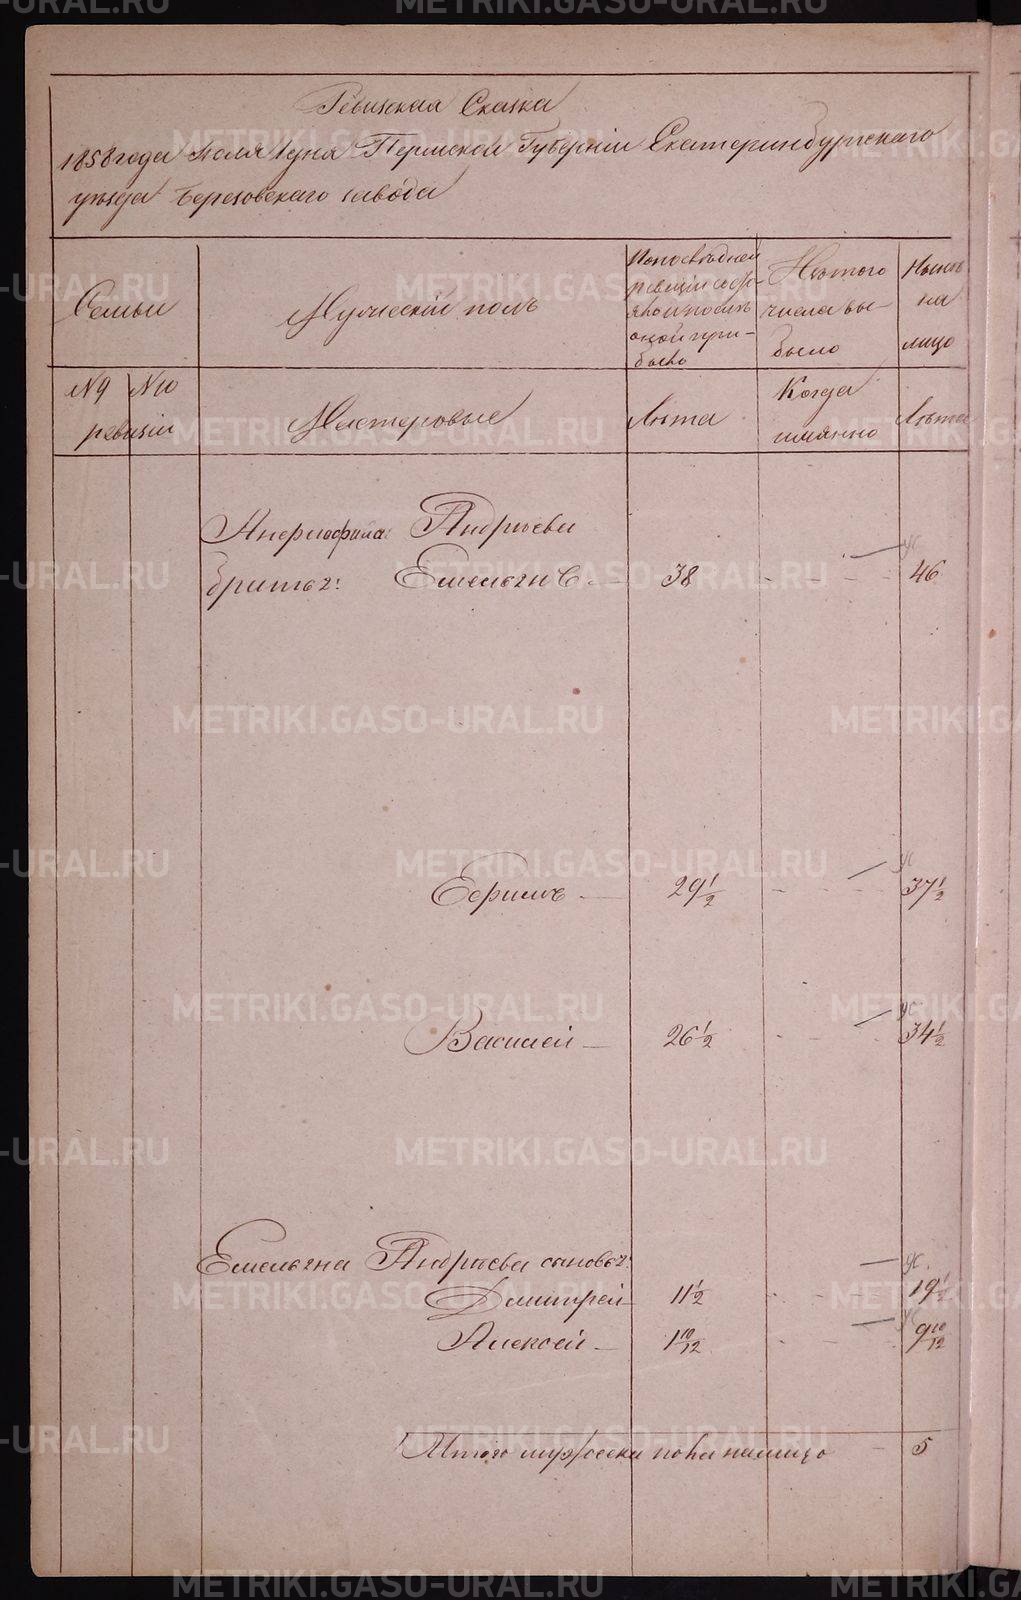 Ревизская Сказка
1858 года Июля 1 дня Пермской Губерніи Екатеринбургского
уѣзда Березовскаго завода
Семьи
Мужескій полъ
По последней
ревизіи состо-
яло и послѣ
оной при-
было
Изъ того
числа вы-
было
Нынѣ
на
лицо
№ 9
№ 10
ревизіи
Мастеровые
Лѣта
Когда
имянно
Лѣта
Андрѣева
братья: Емельянъ 38 46
Ефимъ 29 1/2 37 1/2
Василей 26 1/2 34 1/2
Емельяна Андрѣева сыновья:
Дмитрей 11 1/2 19 1/2
Алексей 1 10/12 9 10/12
Итого мужеска пола налицо 5
METRIKI.GASO-URAL.RU